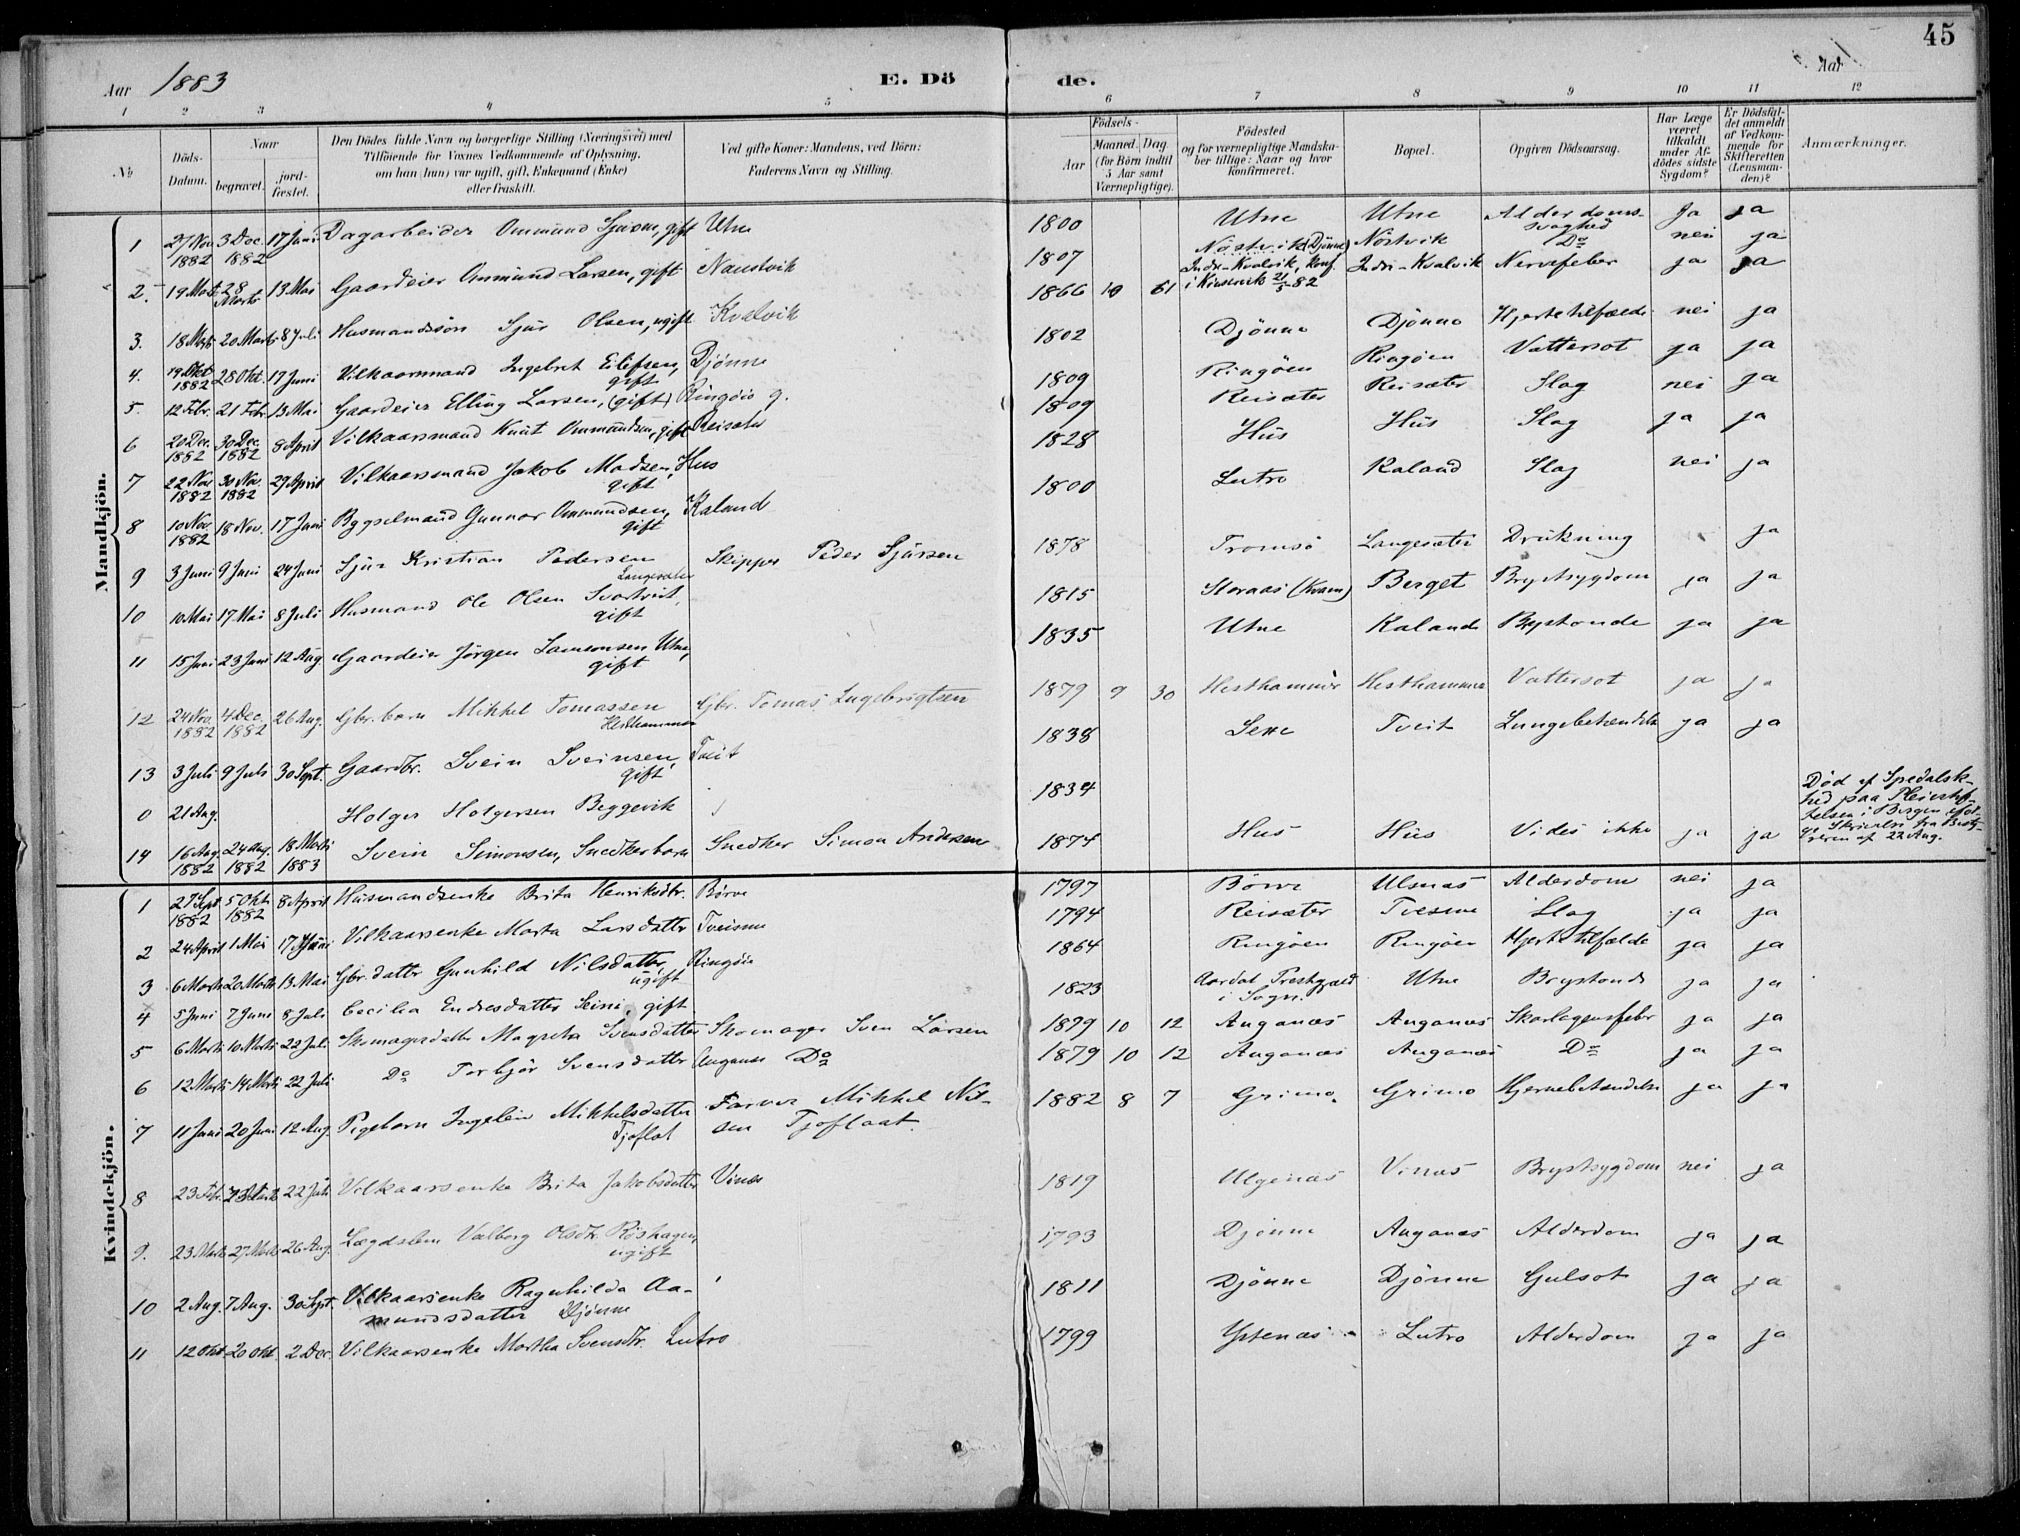 45
Aar 1883
E. Dö de.
Aar
1 2 3 4 5 6 7 8 9 10 11 12
№
Döds-Datum.
Naar
begravet.
jord-fæstet.
Den Dödes fulde Navn og borgerlige Stilling (Næringsvei) med
Tilföiende for Voxnes Vedkommende af Oplysning,
om han (hun) var ugift, gift, Enkemand (Enke)
eller fraskilt.
Ved gifte Koner: Mandens, ved Börn:
Faderens Navn og Stilling.
Födsels-
Aar
Maaned. Dag
(for Börn indtil
5 Aar samt
Værnepligtige).
Födested
og for værnepligtige Mandska-
ber tillige: Naar og hvor
konfirmeret.
Bopæl.
Opgiven Dödsaarsag.
Har Læge
været
tilkaldt
under Af-
dödes sidste
Sygdom?
Er Dödsfal-
det anmeldt
af Vedkom-
mende for
Skifteretten
(Lensman-
den)?
Anmærkninger.
Mandkjön.
1 27 Nov 1882 3 Dec. 1882 17 Juni Dagarbeider Ommund Sjursen, gift Utne 1800 Utne Utne Alderdoms-svaghed Ja ja
2. 19 Marts 28 Marts 13 Mai Gaardeier Ommund Larsen, gift Naustvik 1807 Nöstvik (Djönne) Nöstvik Do nei ja
3. 18 Marts 20 Marts 8 Juli Husmandssön Sjur Olsen, ugift Kvalvik 1866 10 Indre-Kvalvik, konf. i Kinservik 21/5 82 Indre-Kvalvik Nervefeber ja ja
4. 19 Okt 1882 28 Okt. 17 Juni Vilkaarsmand Ingebret Eilifsen, gift Djönne 1802 Djönne Djönne Hjertetilfælde nei ja
5. 12 Febr. 21 Febr. 13 Mai Gaardeier Elling Larsen, (gift) Ringöio g. 1809 Ringöen Ringöen Vattersot ja ja
6 20 Dec. 1882 30 Dec. 1882 8 April Vilkaarsmand Knut Ommundsen, gift Reisæter 1809 Reisæter Reisæter Slag nei ja
7 22 Nov 1882 30 Nov. 1882 29 April Vilkaarsmand Jakob Madsen, gift Hus 1828 Hus Hus Slag ja ja
8 10 Nov. 1882 18 Nov. 17 Juni Bygselmand Gunnar Ommundsen, gift Kaland 1800 Lutro Kaland Slag nei ja
9 3 Juni 9 Juni 24 Juni Sjur Kristian Pedersen Langesæter Skipper Peder Sjursen 1878 Tromsö Langesæter Drukning ja
10 10 Mai 17 Mai 8 Juli Husmand Ole Olsen Svartveit, gift 1815 Storaas (Kvam) Berget Brystsygdom ja ja
11 15 Juni 23 Juni 12 Aug. Gaardeier Jörgen Samsonsen Utne, gift 1835 Utne Kaland Brystonde ja ja
12 24 Nov. 1882 4 Dec. 1882 26 Aug. Gbr. barn Mikkel Tomassen Hesthammer Gbr. Tomas Ingebrigtsen 1879 9 30 Hesthammer Hesthammer Vattersot ja ja
13 3 Juli 9 Juli 30 Sept. Gaardbr. Svein Sveinsen, gift Tveit 1838 Sexe Tveit Lungebetændelse ja ja
0 21 Aug. Holger Holgersen Beggevik 1834 Död af Spedalsk-hed paa Pleiestif-telsen i Bergen iföl-ge Skrivelse fra Besty-reren af 22 Aug.
14 16 Aug. 1882 24 Aug. 1882 18 Marts 1883 Svein Simonsen, Snedkerbarn Snedker Simon Andersen 1874 Hus Hus Vides ikke ja ja
Kvindekjön.
1 27 Sept. 1882 5 Okt. 1882 8 April Husmandsenke Brita Henriksdtr. Börve 1797 Börve Ulsnæs Alderdom nei ja
2 24 April 1 Mai 17 Juni Vilkaarsenke Marta Larsdatter Tveisme 1794 Reisæter Tvesme Slag ja ja
3 6 Marts 20 Marts 13 Mai Gbr. datter Gunhild Nilsdatter, ugift Ringöio 1864 Ringöen Ringöen Hjertetilfælde ja ja
4 5 Juni 7 Juni 8 Juli Cecilia Endresdatter Seim, gift 1823 Aardal Prestgjæld i Sogn. Utne Brystonde ja ja
5 6 Marts 10 Marts 22 Juli Skomagerdatter Magreta Svensdatter Skomager Sven Larsen 1879 10 12 Auganæs Auganæs Skarlagensfeber ja ja
6 12 Marts 14 Marts 22 Juli Do Torbjör Svensdatter Auganæs Do 1879 10 12 Auganæs Auganæs Do ja ja
7 11 Juni 20 Juni 12 Aug. Pigebarn Ingelein Mikkelsdatter Tjoflot Farver Mikkel Nil-sen Tjoflaat 1882 8 7 Grimo Grimo Hjernebetændelse ja ja
8 23 Febr. 22 Juli Vilkaarsenke Brita Jakobsdatter Vinæs 1819 Ulgenæs Vinæs Brystsygdom nei ja
9. 23 Marts 27 Marts 26 Aug. Lægdslem Valborg Olsdtr. Röshagen, ugift 1793 Djönne Auganæs Alderdom ja ja
10 2 Aug. 7 Aug. 30 Sept. Vilkaarsenke Ragnhilda Aa-mundsdatter Djönne 1811 Djönne Djönne Gulsot ja ja
11 12 Okt. 20 Okt. 2 Dec. Vilkaarsenke Martha Svensdtr. Lutro 1799 Ystenæs Lutro Alderdom ja ja